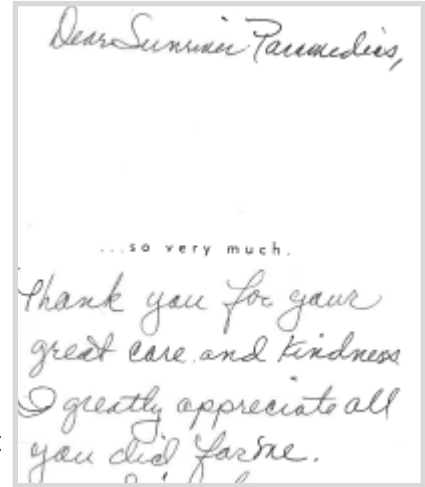 Dear Sunriver Paramedics,
...so very much.
Thank you for your
great care and kindness
I greatly appreciate all
you did for me.